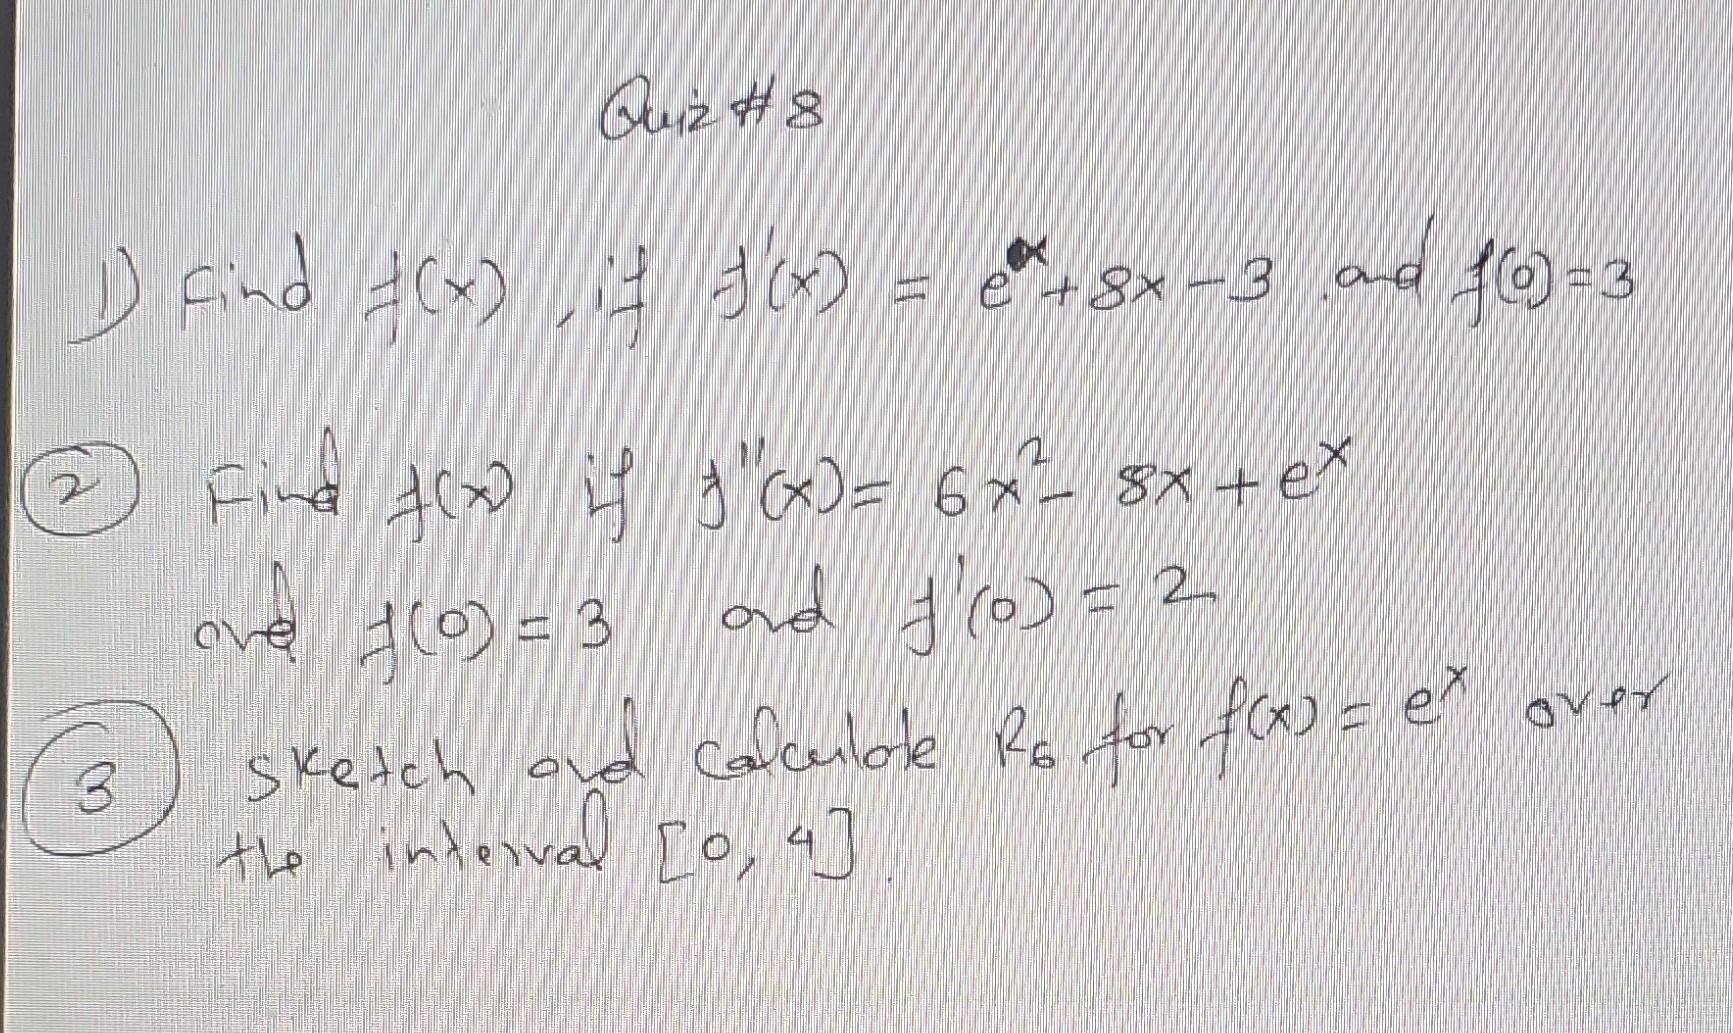 Quiz #8
1) Find f(x), if f'(x) = eˣ + 8x - 3 and f(0) = 3
2 Find f(x) if f''(x) = 6x² - 8x + eˣ
and f(0) = 3 and f'(0) = 2
3 Sketch and calculate R₆ for f(x) = eˣ over
the interval [0, 4].